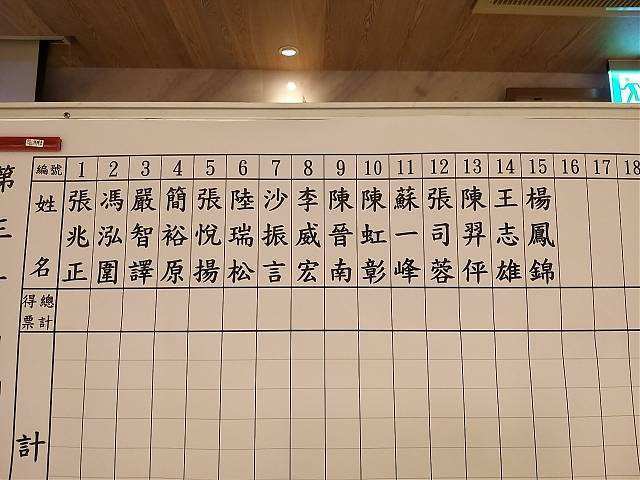 編號 1 2 3 4 5 6 7 8 9 10 11 12 13 14 15 16 17 18
姓名
張兆正
馮泓圍
嚴智譯
簡裕原
張悅揚
陸瑞松
沙振言
李威宏
陳晉南
陳虹彰
蘇一峰
張司蓉
陳羿伻
王志雄
楊鳳錦
得票總計
第三
計